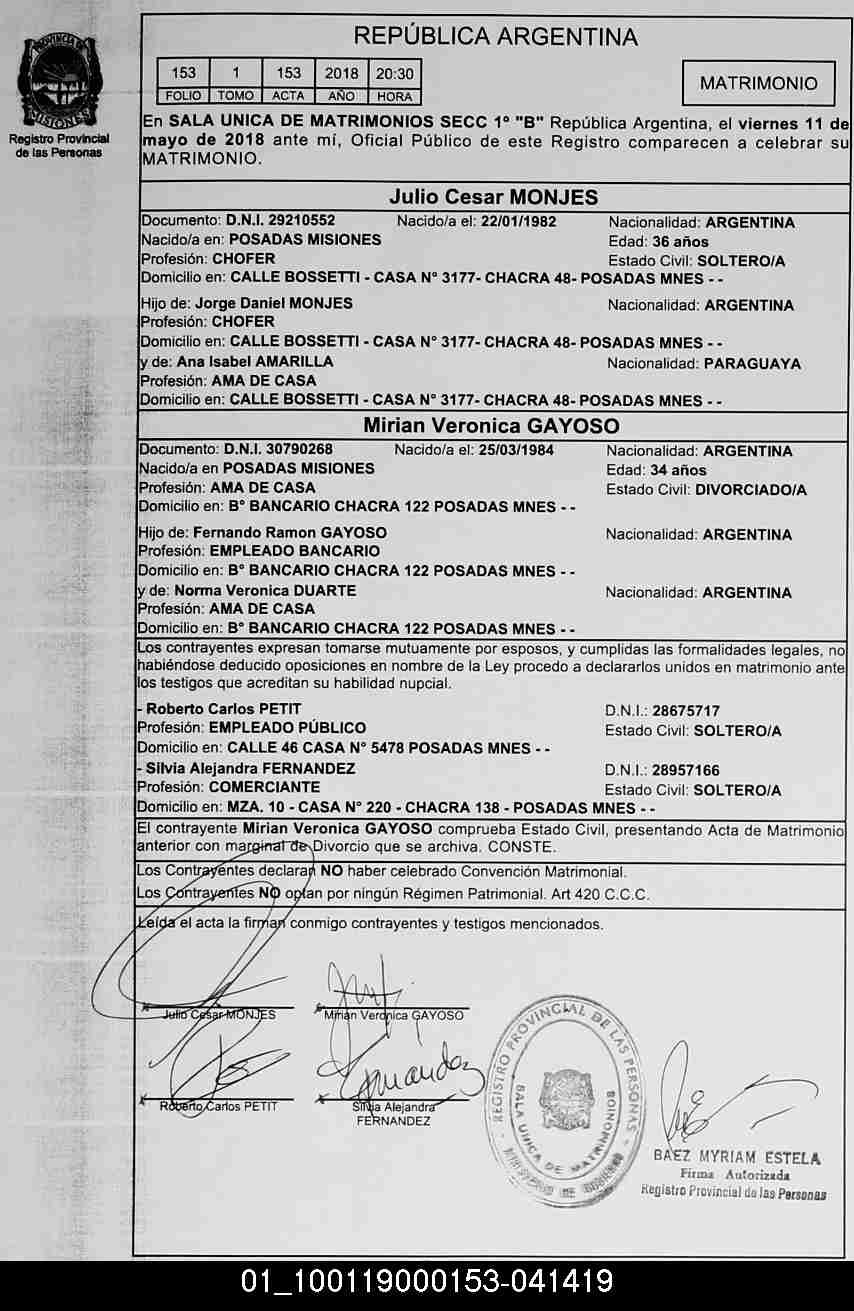 REPÚBLICA ARGENTINA
153 1 153 2018 20:30
FOLIO TOMO ACTA AÑO HORA
MATRIMONIO
PROVINCIA DE
MISIONES
Registro Provincial
de las Personas
En SALA UNICA DE MATRIMONIOS SECC 1º "B" República Argentina, el viernes 11 de
mayo de 2018 ante mí, Oficial Público de este Registro comparecen a celebrar su
MATRIMONIO.
Julio Cesar MONJES
Documento: D.N.I. 29210552 Nacido/a el: 22/01/1982 Nacionalidad: ARGENTINA
Nacido/a en: POSADAS MISIONES Edad: 36 años
Profesión: CHOFER Estado Civil: SOLTERO/A
Domicilio en: CALLE BOSSETTI - CASA N° 3177- CHACRA 48- POSADAS MNES - -
Hijo de: Jorge Daniel MONJES Nacionalidad: ARGENTINA
Profesión: CHOFER
Domicilio en: CALLE BOSSETTI - CASA N° 3177- CHACRA 48- POSADAS MNES - -
y de: Ana Isabel AMARILLA Nacionalidad: PARAGUAYA
Profesión: AMA DE CASA
Domicilio en: CALLE BOSSETTI - CASA N° 3177- CHACRA 48- POSADAS MNES - -
Mirian Veronica GAYOSO
Documento: D.N.I. 30790268 Nacido/a el: 25/03/1984 Nacionalidad: ARGENTINA
Nacido/a en POSADAS MISIONES Edad: 34 años
Profesión: AMA DE CASA Estado Civil: DIVORCIADO/A
Domicilio en: B° BANCARIO CHACRA 122 POSADAS MNES - -
Hijo de: Fernando Ramon GAYOSO Nacionalidad: ARGENTINA
Profesión: EMPLEADO BANCARIO
Domicilio en: B° BANCARIO CHACRA 122 POSADAS MNES - -
y de: Norma Veronica DUARTE Nacionalidad: ARGENTINA
Profesión: AMA DE CASA
Domicilio en: B° BANCARIO CHACRA 122 POSADAS MNES - -
Los contrayentes expresan tomarse mutuamente por esposos, y cumplidas las formalidades legales, no
habiéndose deducido oposiciones en nombre de la Ley procedo a declararlos unidos en matrimonio ante
los testigos que acreditan su habilidad nupcial.
- Roberto Carlos PETIT D.N.I.: 28675717
Profesión: EMPLEADO PÚBLICO Estado Civil: SOLTERO/A
Domicilio en: CALLE 46 CASA N° 5478 POSADAS MNES - -
- Silvia Alejandra FERNANDEZ D.N.I.: 28957166
Profesión: COMERCIANTE Estado Civil: SOLTERO/A
Domicilio en: MZA. 10 - CASA N° 220 - CHACRA 138 - POSADAS MNES - -
El contrayente Mirian Veronica GAYOSO comprueba Estado Civil, presentando Acta de Matrimonio
anterior con marginal de Divorcio que se archiva. CONSTE.
Los Contrayentes declaran NO haber celebrado Convención Matrimonial.
Los Contrayentes NO optan por ningún Régimen Patrimonial. Art 420 C.C.C.
Leída el acta la firman conmigo contrayentes y testigos mencionados.
Julio Cesar MONJES
Mirian Veronica GAYOSO
Fernandez
Roberto Carlos PETIT
Silvia Alejandra
FERNANDEZ
REGISTRO PROVINCIAL DE LAS PERSONAS
SALA UNICA DE MATRIMONIOS
MINISTERIO DE GOBIERNO
BAEZ MYRIAM ESTELA
Firma Autorizada
Registro Provincial de las Personas
01_100119000153-041419